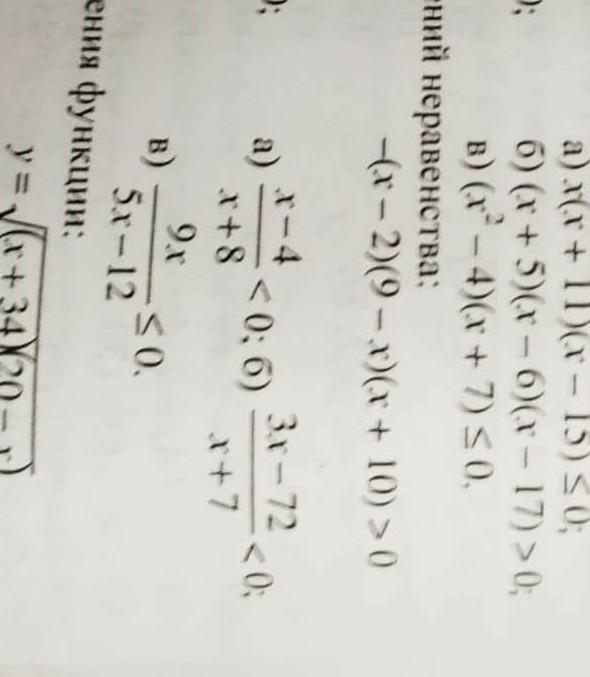 а) x(x + 11)(x − 15) ≤ 0;
);
б) (x + 5)(x − 6)(x − 17) > 0;
в) (x² − 4)(x + 7) ≤ 0.
ний неравенства:
−(x − 2)(9 − x)(x + 10) > 0
);
а) (x − 4)/(x + 8) < 0; б) (3x − 72)/(x + 7) < 0;
в) 9x/(5x − 12) ≤ 0.
ения функции:
y = √(x + 34)(20 − x)